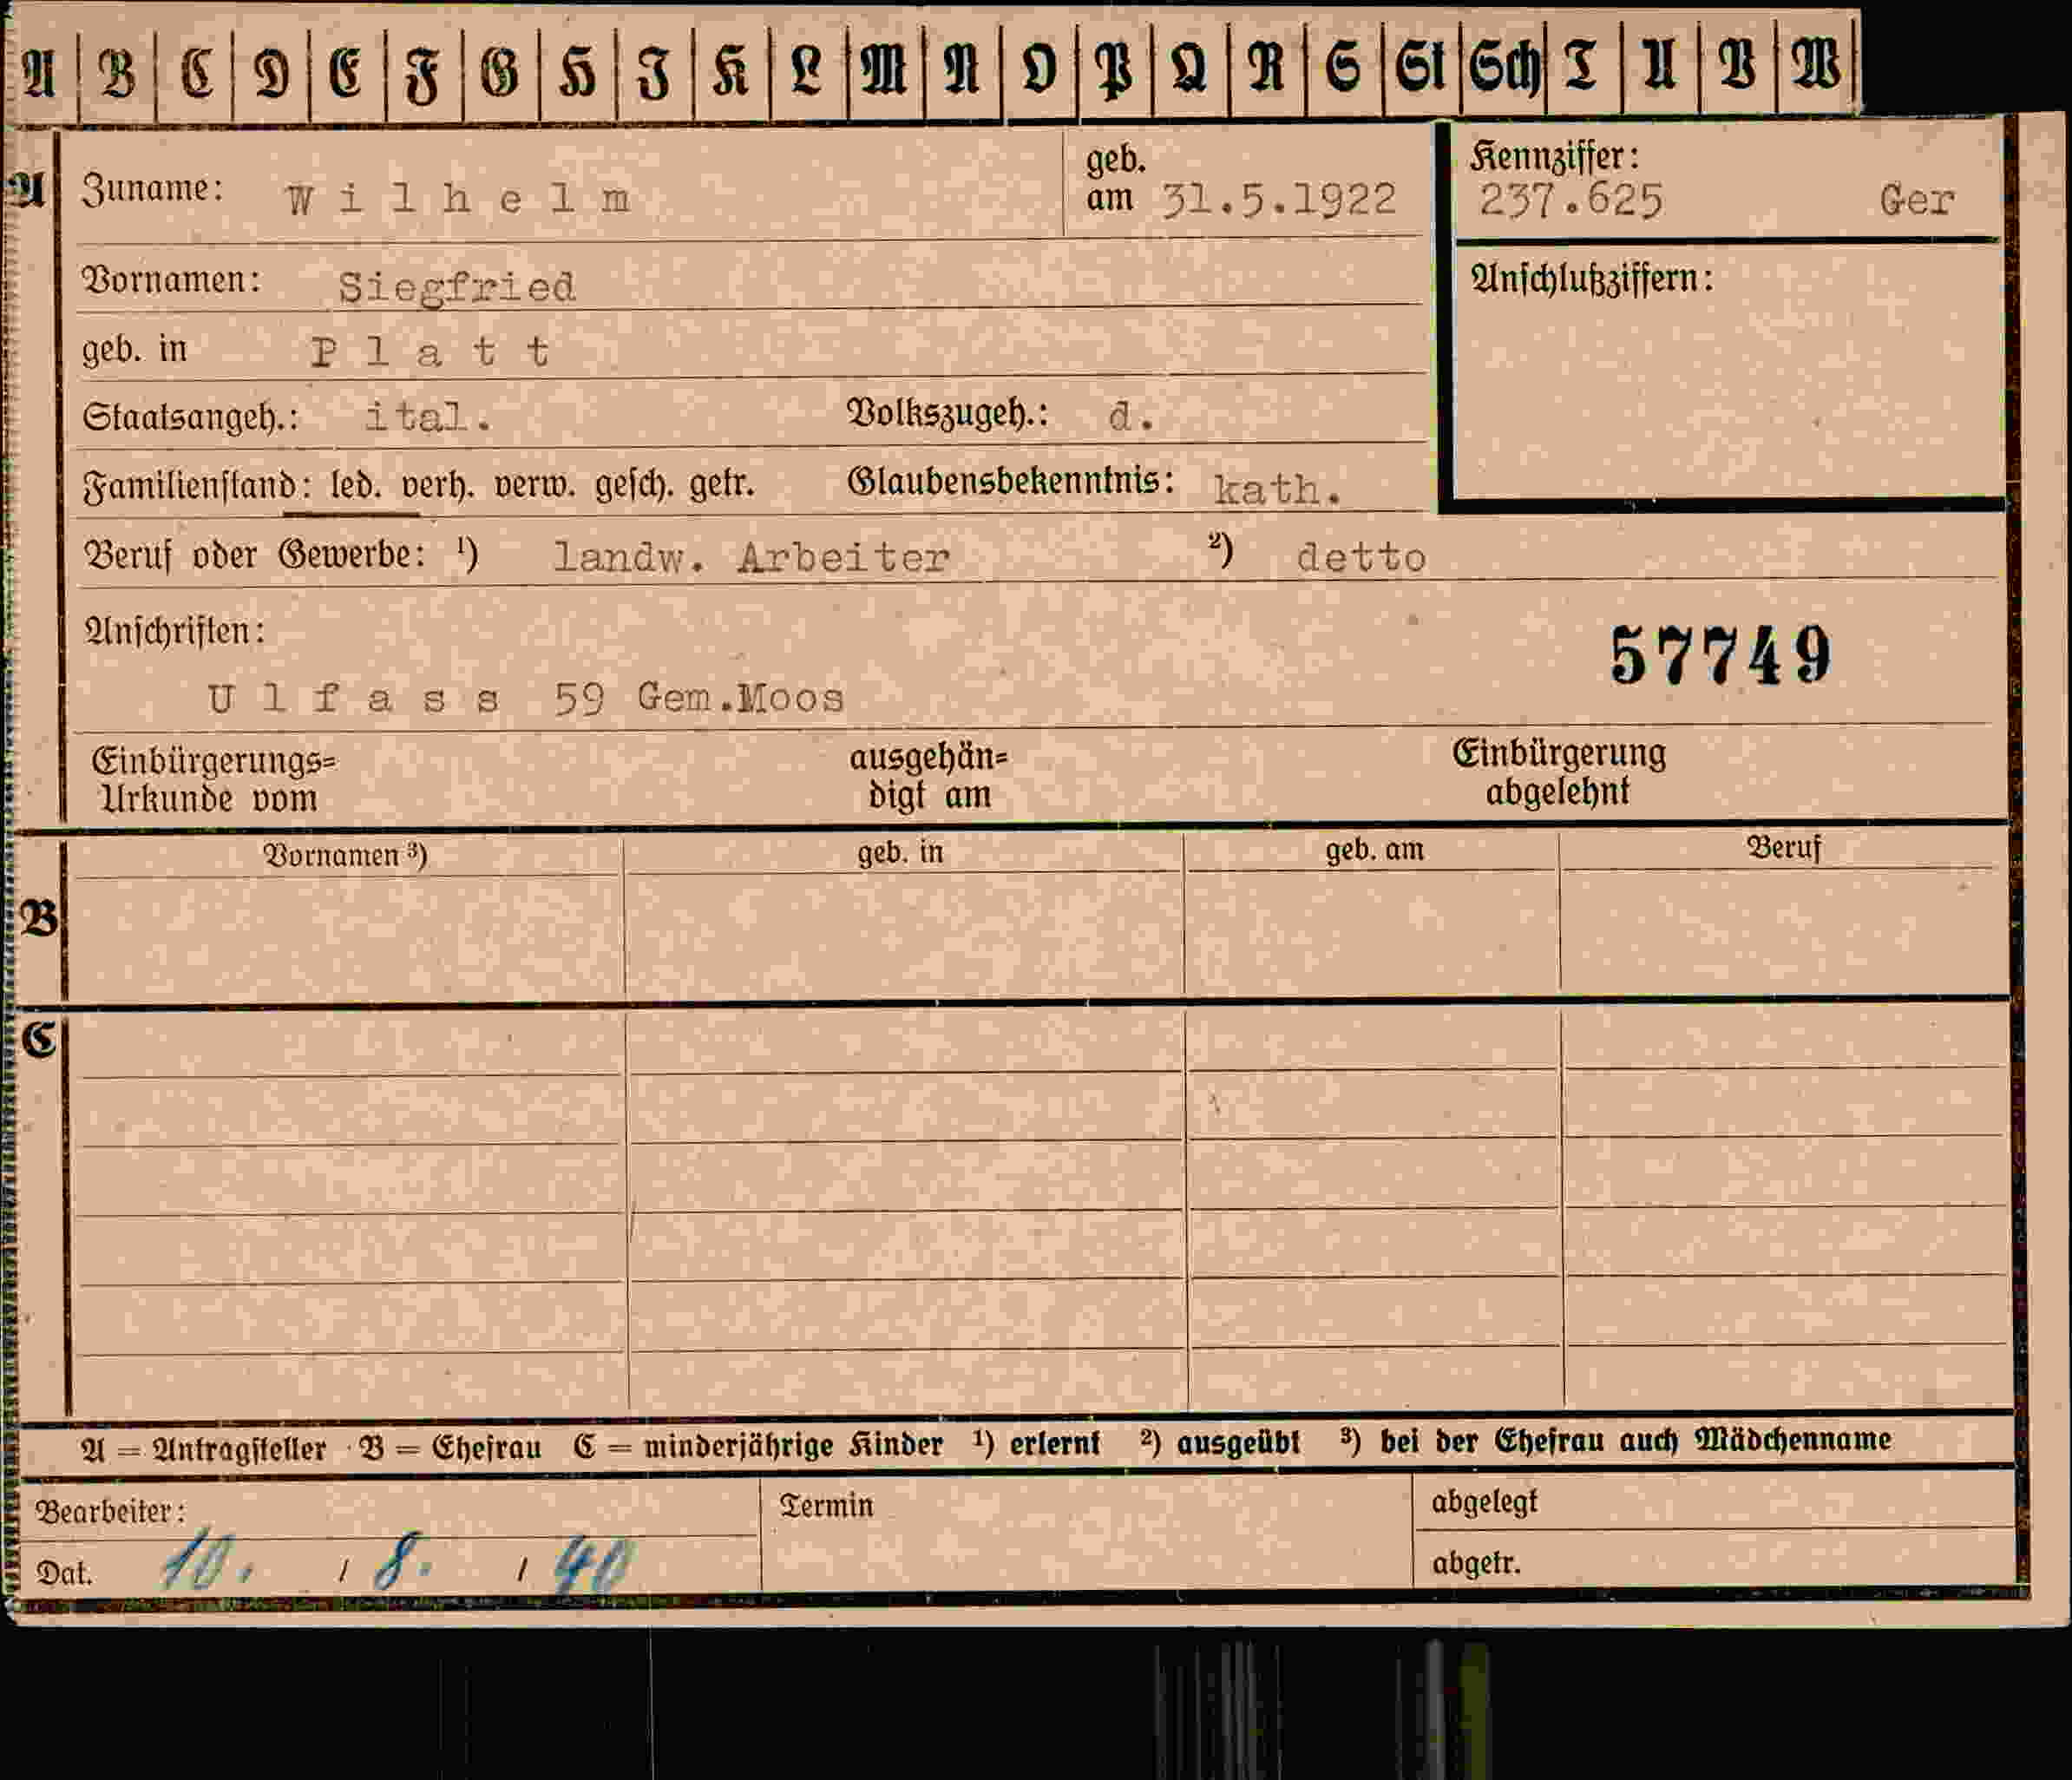 A B C D E F G H J K L M N O P Q R S St Sch T U V W
A Zuname: Wilhelm geb. am 31.5.1922 Kennziffer: 237.625 Ger
Vornamen: Siegfried Anschlußziffern:
geb. in Platt
Staatsangeh.: ital. Volkszugeh.: d.
Familienstand: led. verh. verw. gesch. getr. Glaubensbekenntnis: kath.
Beruf oder Gewerbe: ¹) landw. Arbeiter ²) detto
Anschriften: 57749
Ulfass 59 Gem.Moos
Einbürgerungs= ausgehän= Einbürgerung
Urkunde vom digt am abgelehnt
Vornamen ³) geb. in geb. am Beruf
B
C
A = Antragsteller B = Ehefrau C = minderjährige Kinder ¹) erlernt ²) ausgeübt ³) bei der Ehefrau auch Mädchenname
Bearbeiter: Termin abgelegt
Dat. 10. / 8. / 40 abgetr.